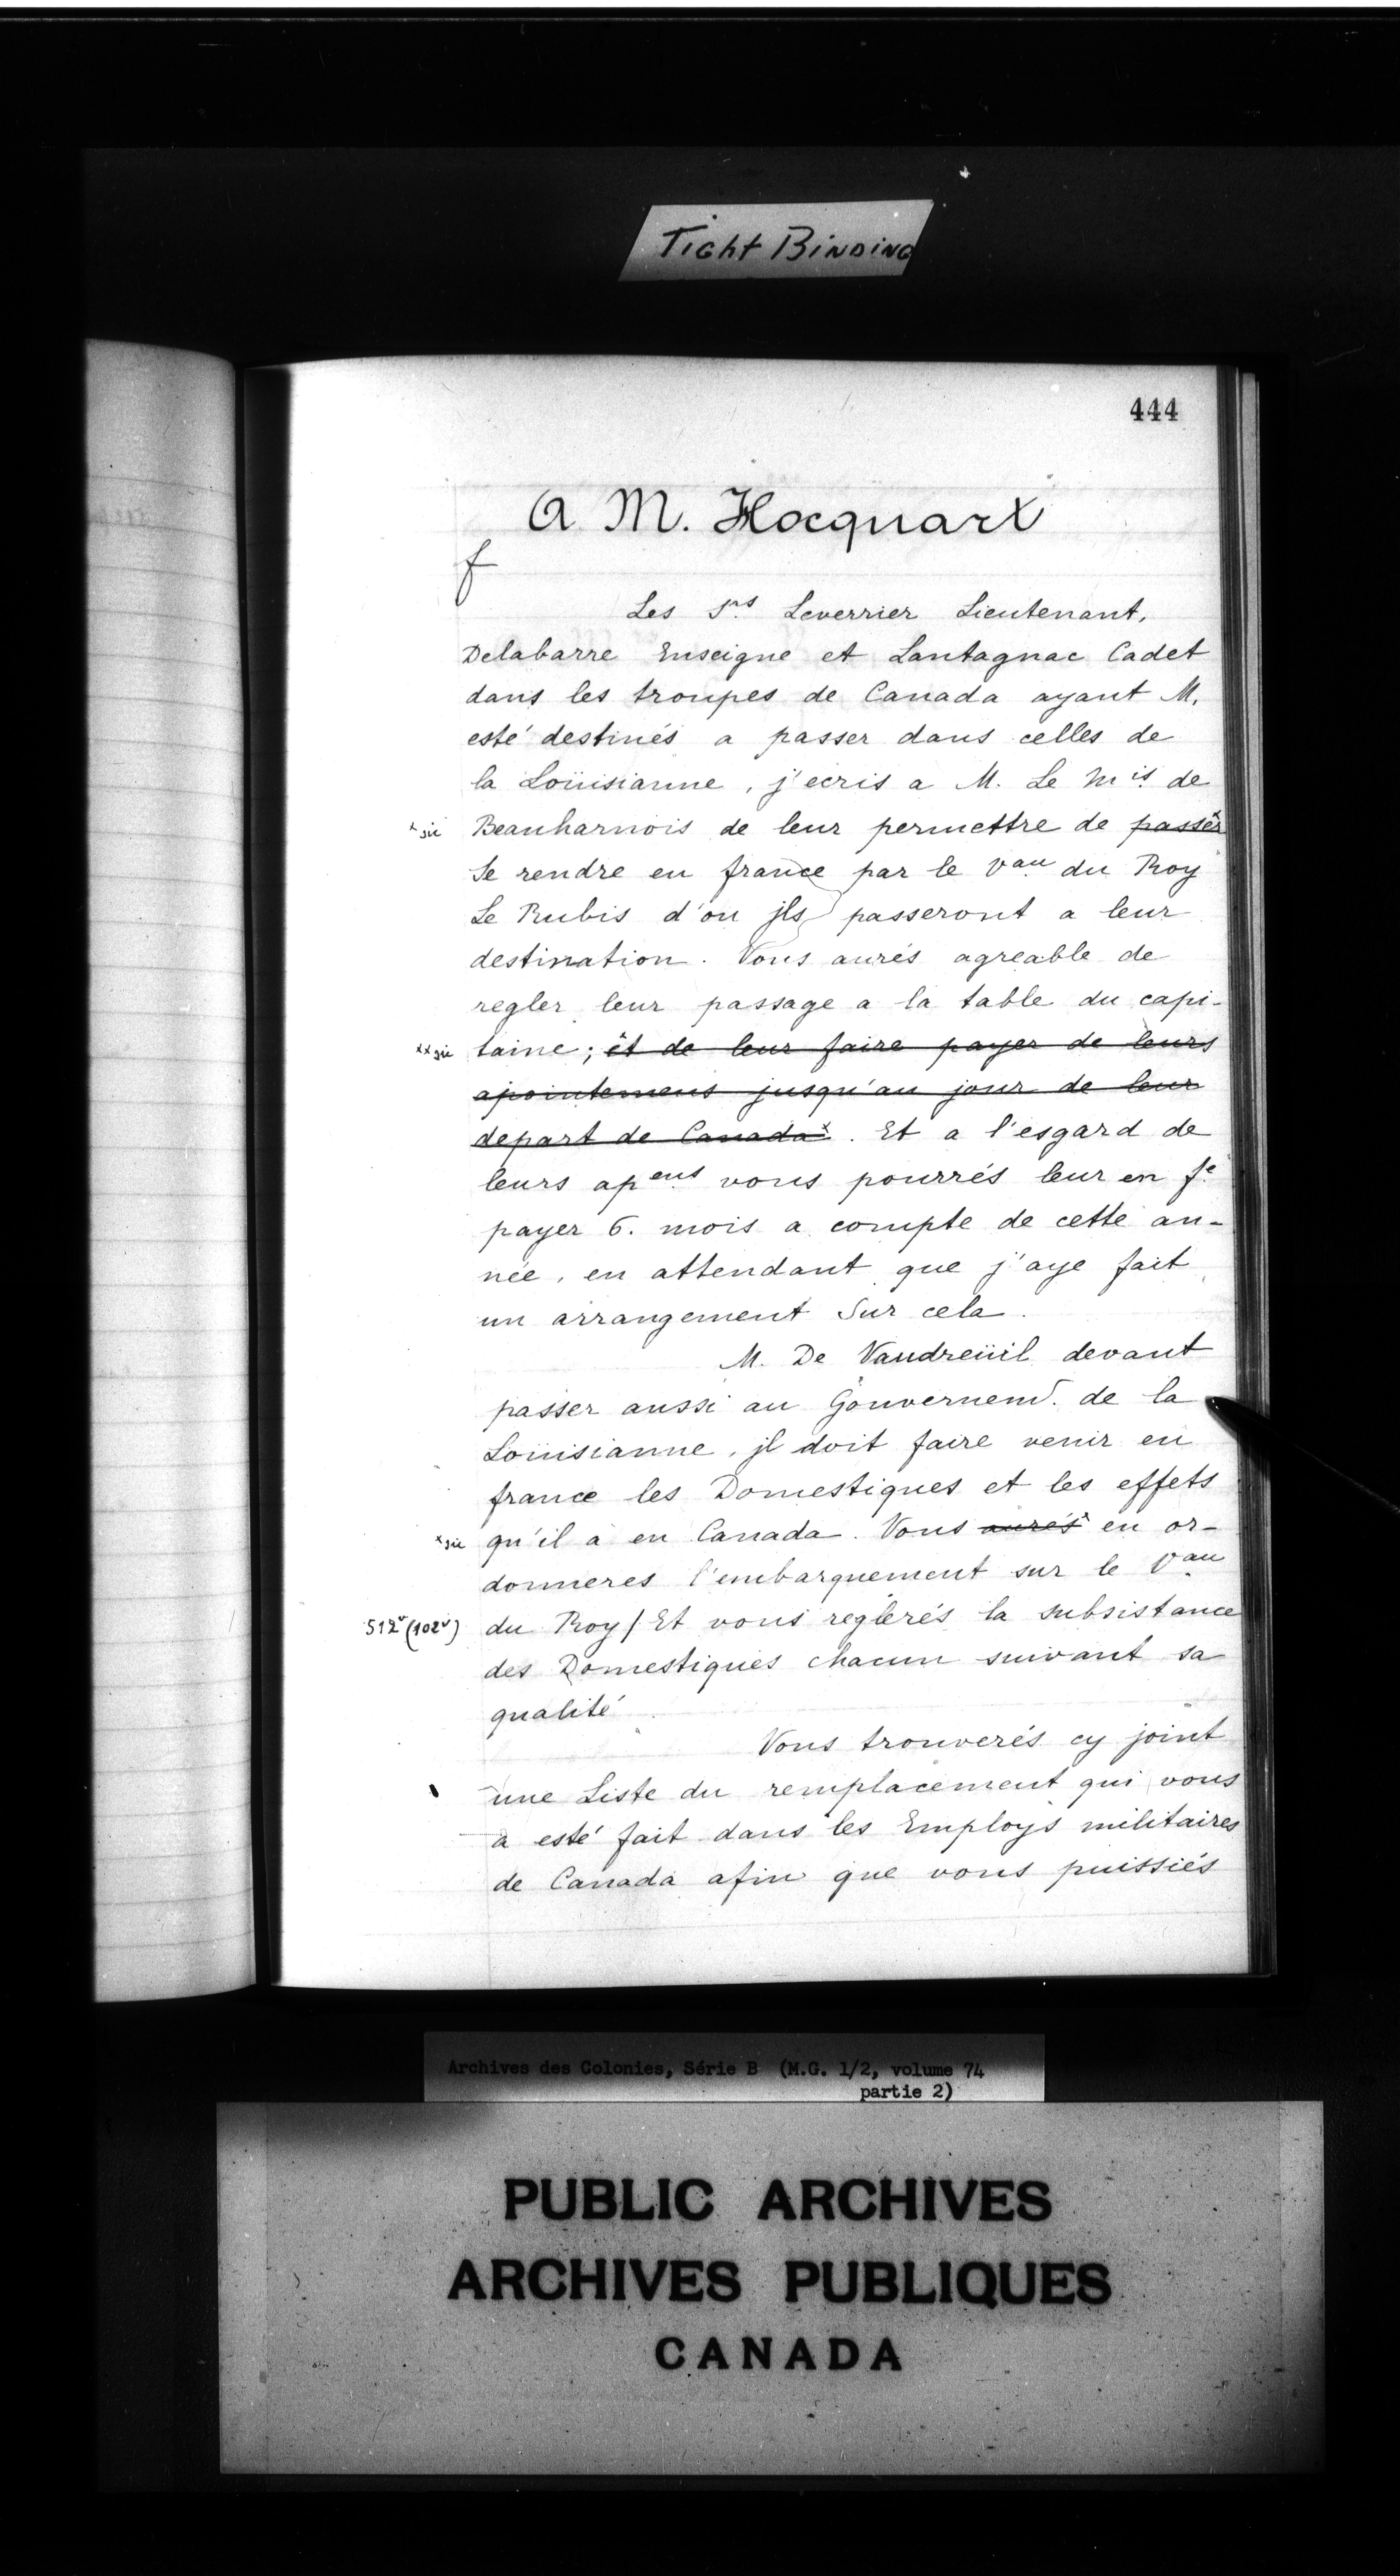 Tight Binding
444
A M. Hocquart
f
Les Srs Leverrier Lieutenant,
Delabarre Enseigne et Lantagnac Cadet
dans les troupes de Canada ayant M.
esté destinés a passer dans celles de
la Loüisianne, j'ecris a M. Le Mis de
x sic Beauharnois de leur permettre de passer x
Se rendre en france par le Vau du Roy
Le Rubis d'ou jls passeront a leur
destination. Vous aurés agreable de
regler leur passage a la table du capi-
xx sic taine; et de leur faire payer de leurs
apointemens jusqu'au jour de leur
depart de Canada x. Et a l'esgard de
leurs apens vous pourrés leur en fe
payer 6. mois a compte de cette an-
née, en attendant que j'aye fait
un arrangement Sur cela.
M. De Vaudreüil devant
passer aussi au Gouvernemt. de la
Loüisianne, jl doit faire venir en
france les Domestiques et les effets
x sic qu'il a en Canada. Vous aurés x en or-
donneres l'embarquement sur le Vau
512v (102v) du Roy / Et vous reglerés la subsistance
des Domestiques chacun suivant sa
qualité.
Vous trouverés cy joint
une Liste du remplacement qui vous
a esté fait dans les Employs militaires
de Canada afin que vous puissiés
Archives des Colonies, Série B (M.G. 1/2, volume 74
partie 2)
PUBLIC ARCHIVES
ARCHIVES PUBLIQUES
CANADA